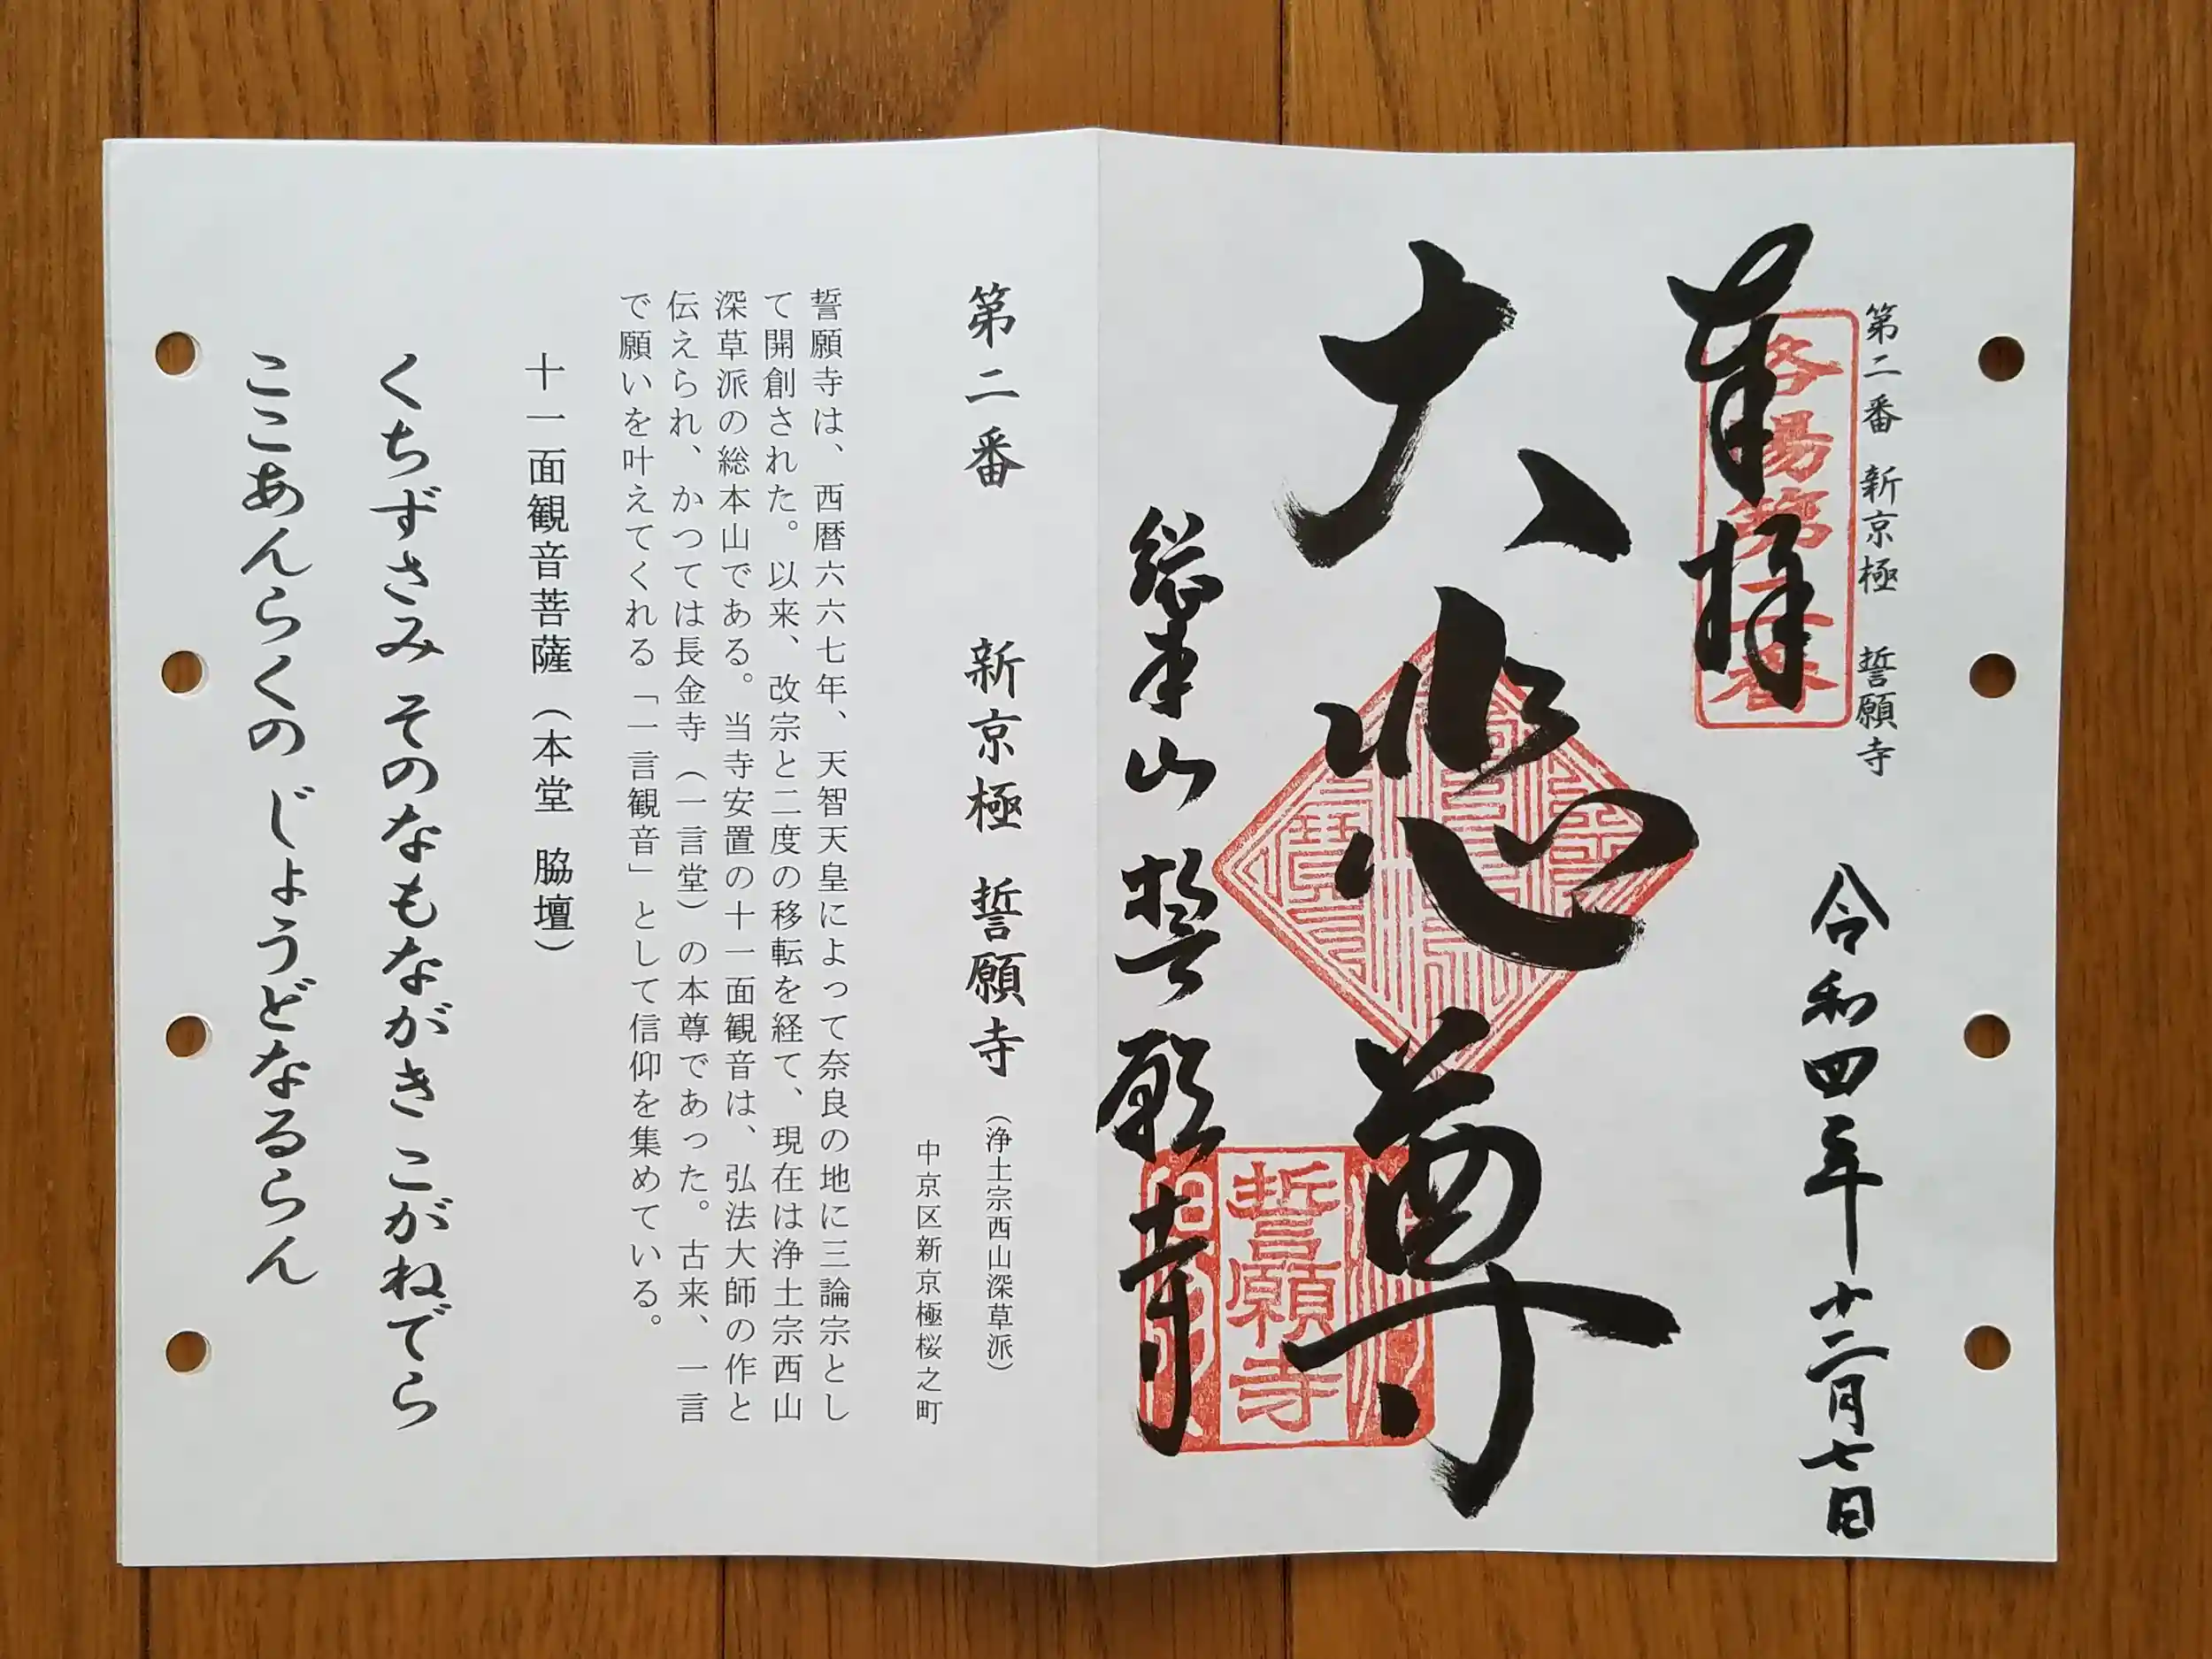 第二番 新京極 誓願寺
令和四年十二月七日
奉拝
洛陽第二番
大悲尊
総本山 誓願寺
誓願寺
第二番 新京極 誓願寺 (浄土宗西山深草派)
中京区新京極桜之町
誓願寺は、西暦六六七年、天智天皇によって奈良の地に三論宗とし
て開創された。以来、改宗と二度の移転を経て、現在は浄土宗西山
深草派の総本山である。当寺安置の十一面観音は、弘法大師の作と
伝えられ、かつては長金寺(一言堂)の本尊であった。古来、一言
で願いを叶えてくれる「一言観音」として信仰を集めている。
十一面観音菩薩(本堂 脇壇)
くちずさみ そのなもながき こがねでら
ここあんらくの じょうどなるらん